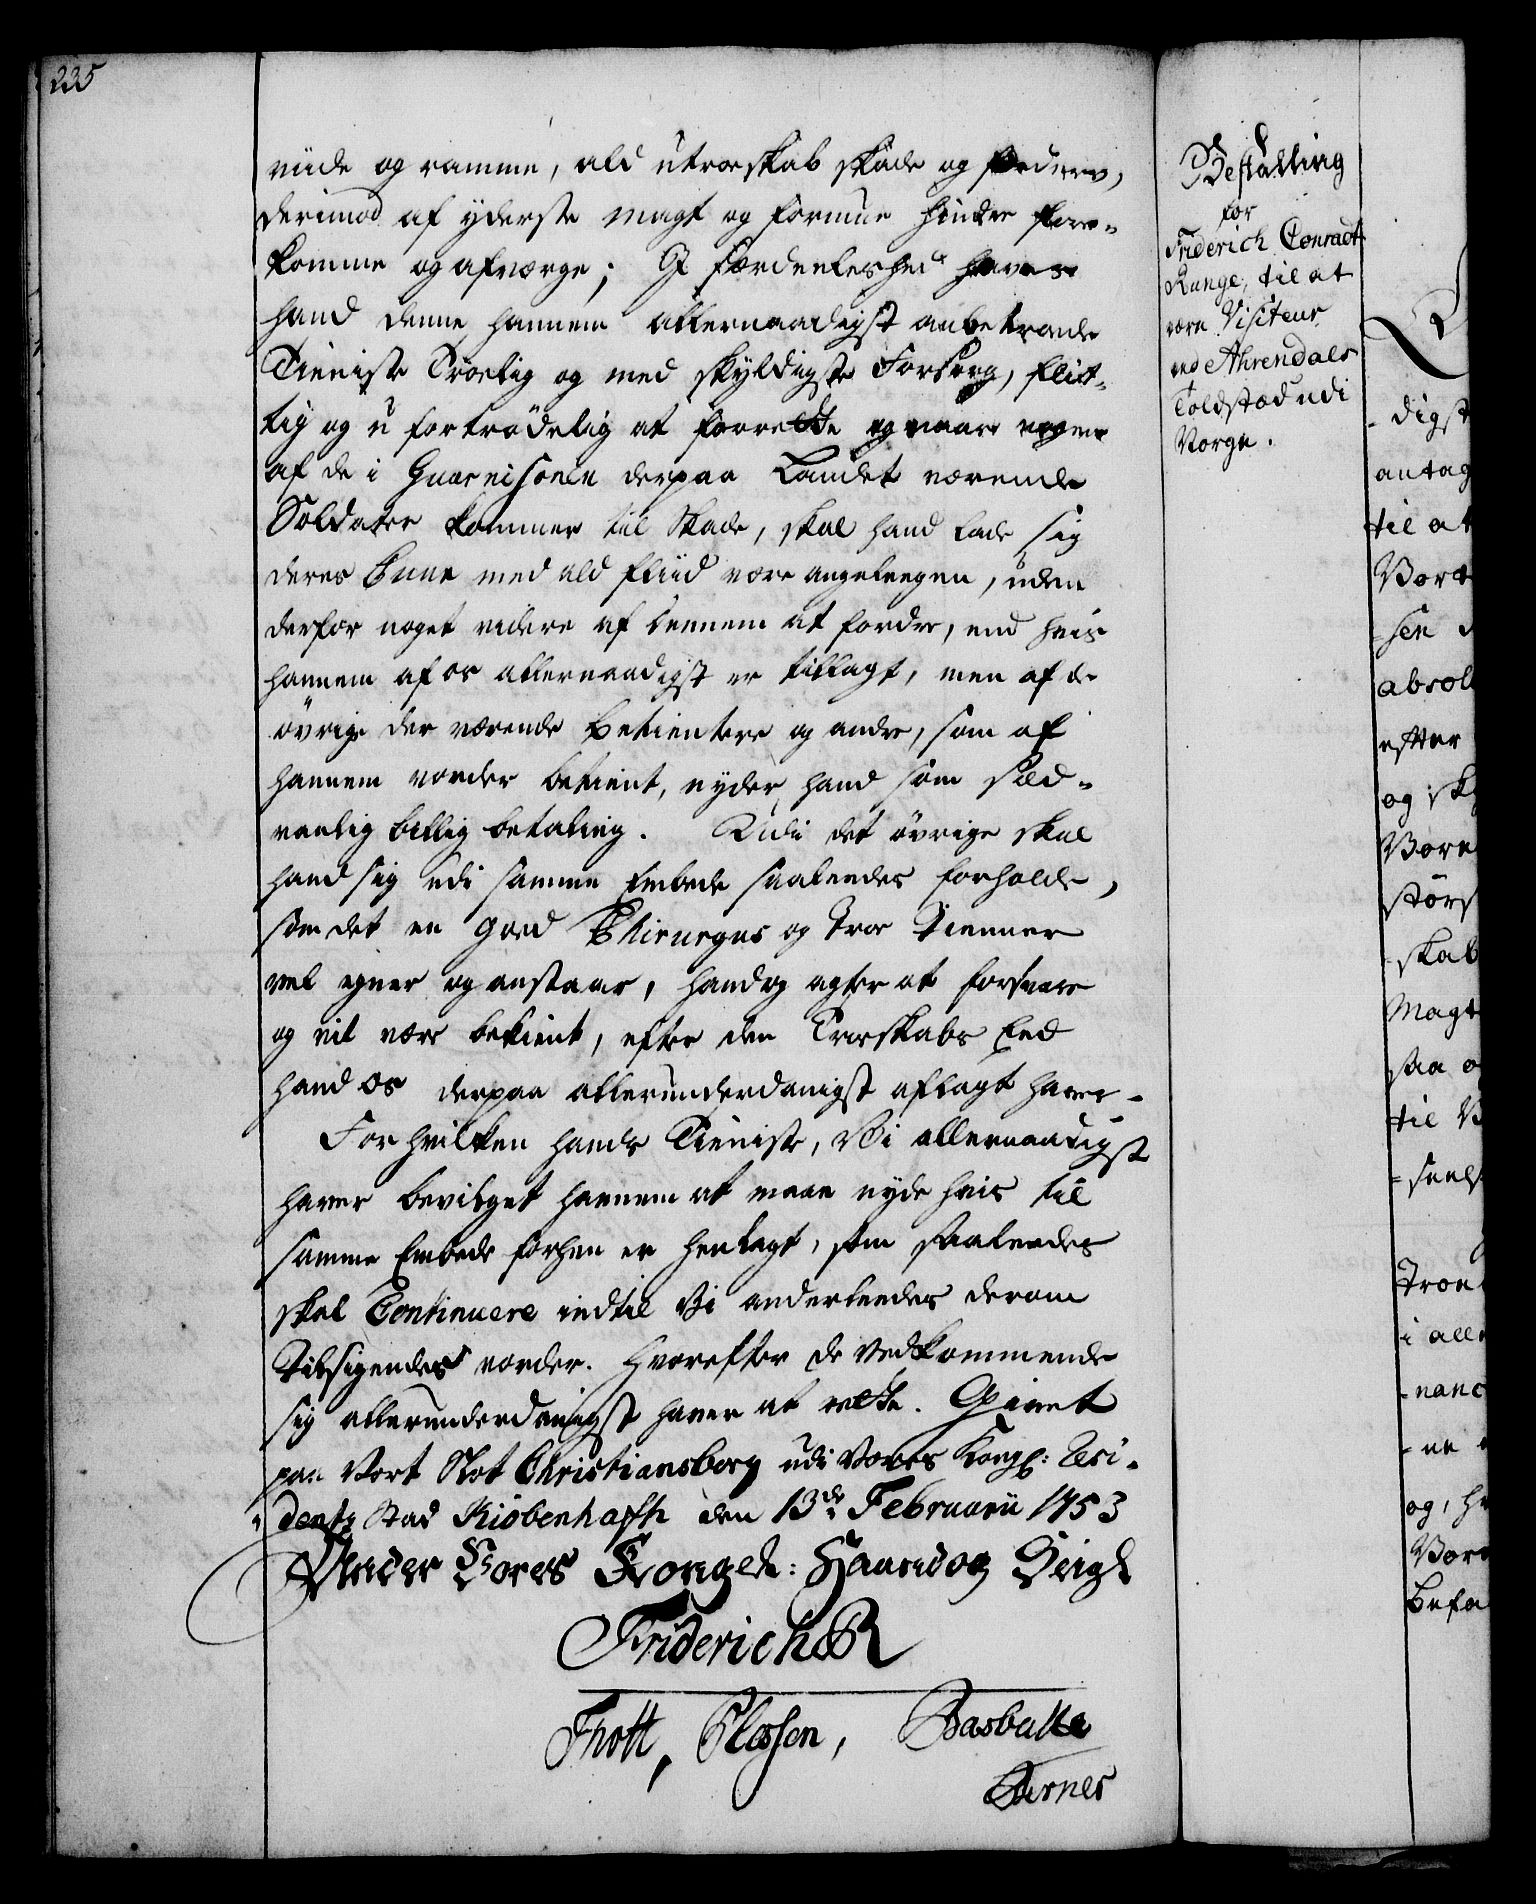 225
viide og ramme, ald utroeskab skade og fordærv,
derimod af yderste magt og formue hindre fore-
komme og afværge; I særdeeleshed haver
hand denne hannem allernaadigst anbetroede
Tieniste Troelig og med skyldigste Forsorg, flit-
tig og u fortrødelig at forrette og naar nogen
af de i Guarnisonen derpaa Landet værende
Soldater kommer til Skade, skal hand lade sig
deres Cuur med ald fliid være angelegen, uden
derfor noget videre af dennem at fordre, end hvis
hannem af os allernaadigst er tillagt, men af de
övrige der værende betientere og andre, som af
hannem vorder betient, nyder hand som sæd-
vanlig billig betaling. Udi det övrige skal
hand sig udi samme Embede saaledes forholde,
som det en goed Chirurgus og Troe Tienner
vel egner og anstaar, hand og agter at forsvare
og vil være bekient, efter den Troeskabs Eed
hand os derpaa allerunderdanigst aflagt haver.
For hvilken hands Tieniste, Vi allernaadigst
haver bevilget hannem at maae nyde hvis til
samme Embede forhen er henlagt, som saaledes
skal Continuere indtil Vi anderleedes derom
Tilsigendes vorder. Hvorefter de Vedkommende
sig allerunderdanigst haver at rette. Givet
paa Vort Slot Christiansborg udi Vores Kongl: Resi-
dentz Stad Kiøbenhafn den 13de Februarii 1753
Under Vores Kongel: Haand og Seigl
Friderich R
Thott, Plessen,
Bestalling
for
Friderich Conradt
Runge, til at
være Visiteur
ved Ahrendals
Toldsted udi
Norge.
- digst
antag
til at
Vort
- sen
absol
efter
og sk
Vore
størs
- skab
Magt
saa o
til V
- seels
Troe
i alle
- nanc
- ne
og, h
Vor
befa